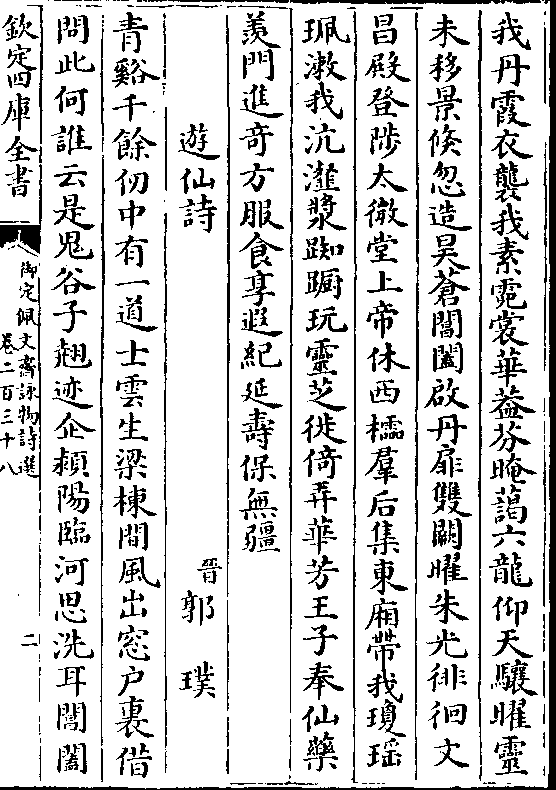 我丹霞衣襲我素霓裳華葢芬晻藹六龍仰天驤曜靈
未移景倐忽造昊蒼閶闔啟丹扉雙闕曜朱光徘徊文
昌殿登陟太微堂上帝休西櫺羣后集東廂帶我瓊瑶
珮漱我沆瀣漿踟躕玩靈芝徙倚弄華芳王子奉仙藥
羨門進奇方服食享遐紀延壽保無疆
遊仙詩
晉郭璞
青谿千餘仞中有一道士雲生梁棟間風出窓户裏借
問此何誰云是鬼谷子翹迹企潁陽臨河思洗耳閶闔
欽定四庫全書
御定佩文齋詠物詩選
卷二百三十八
二